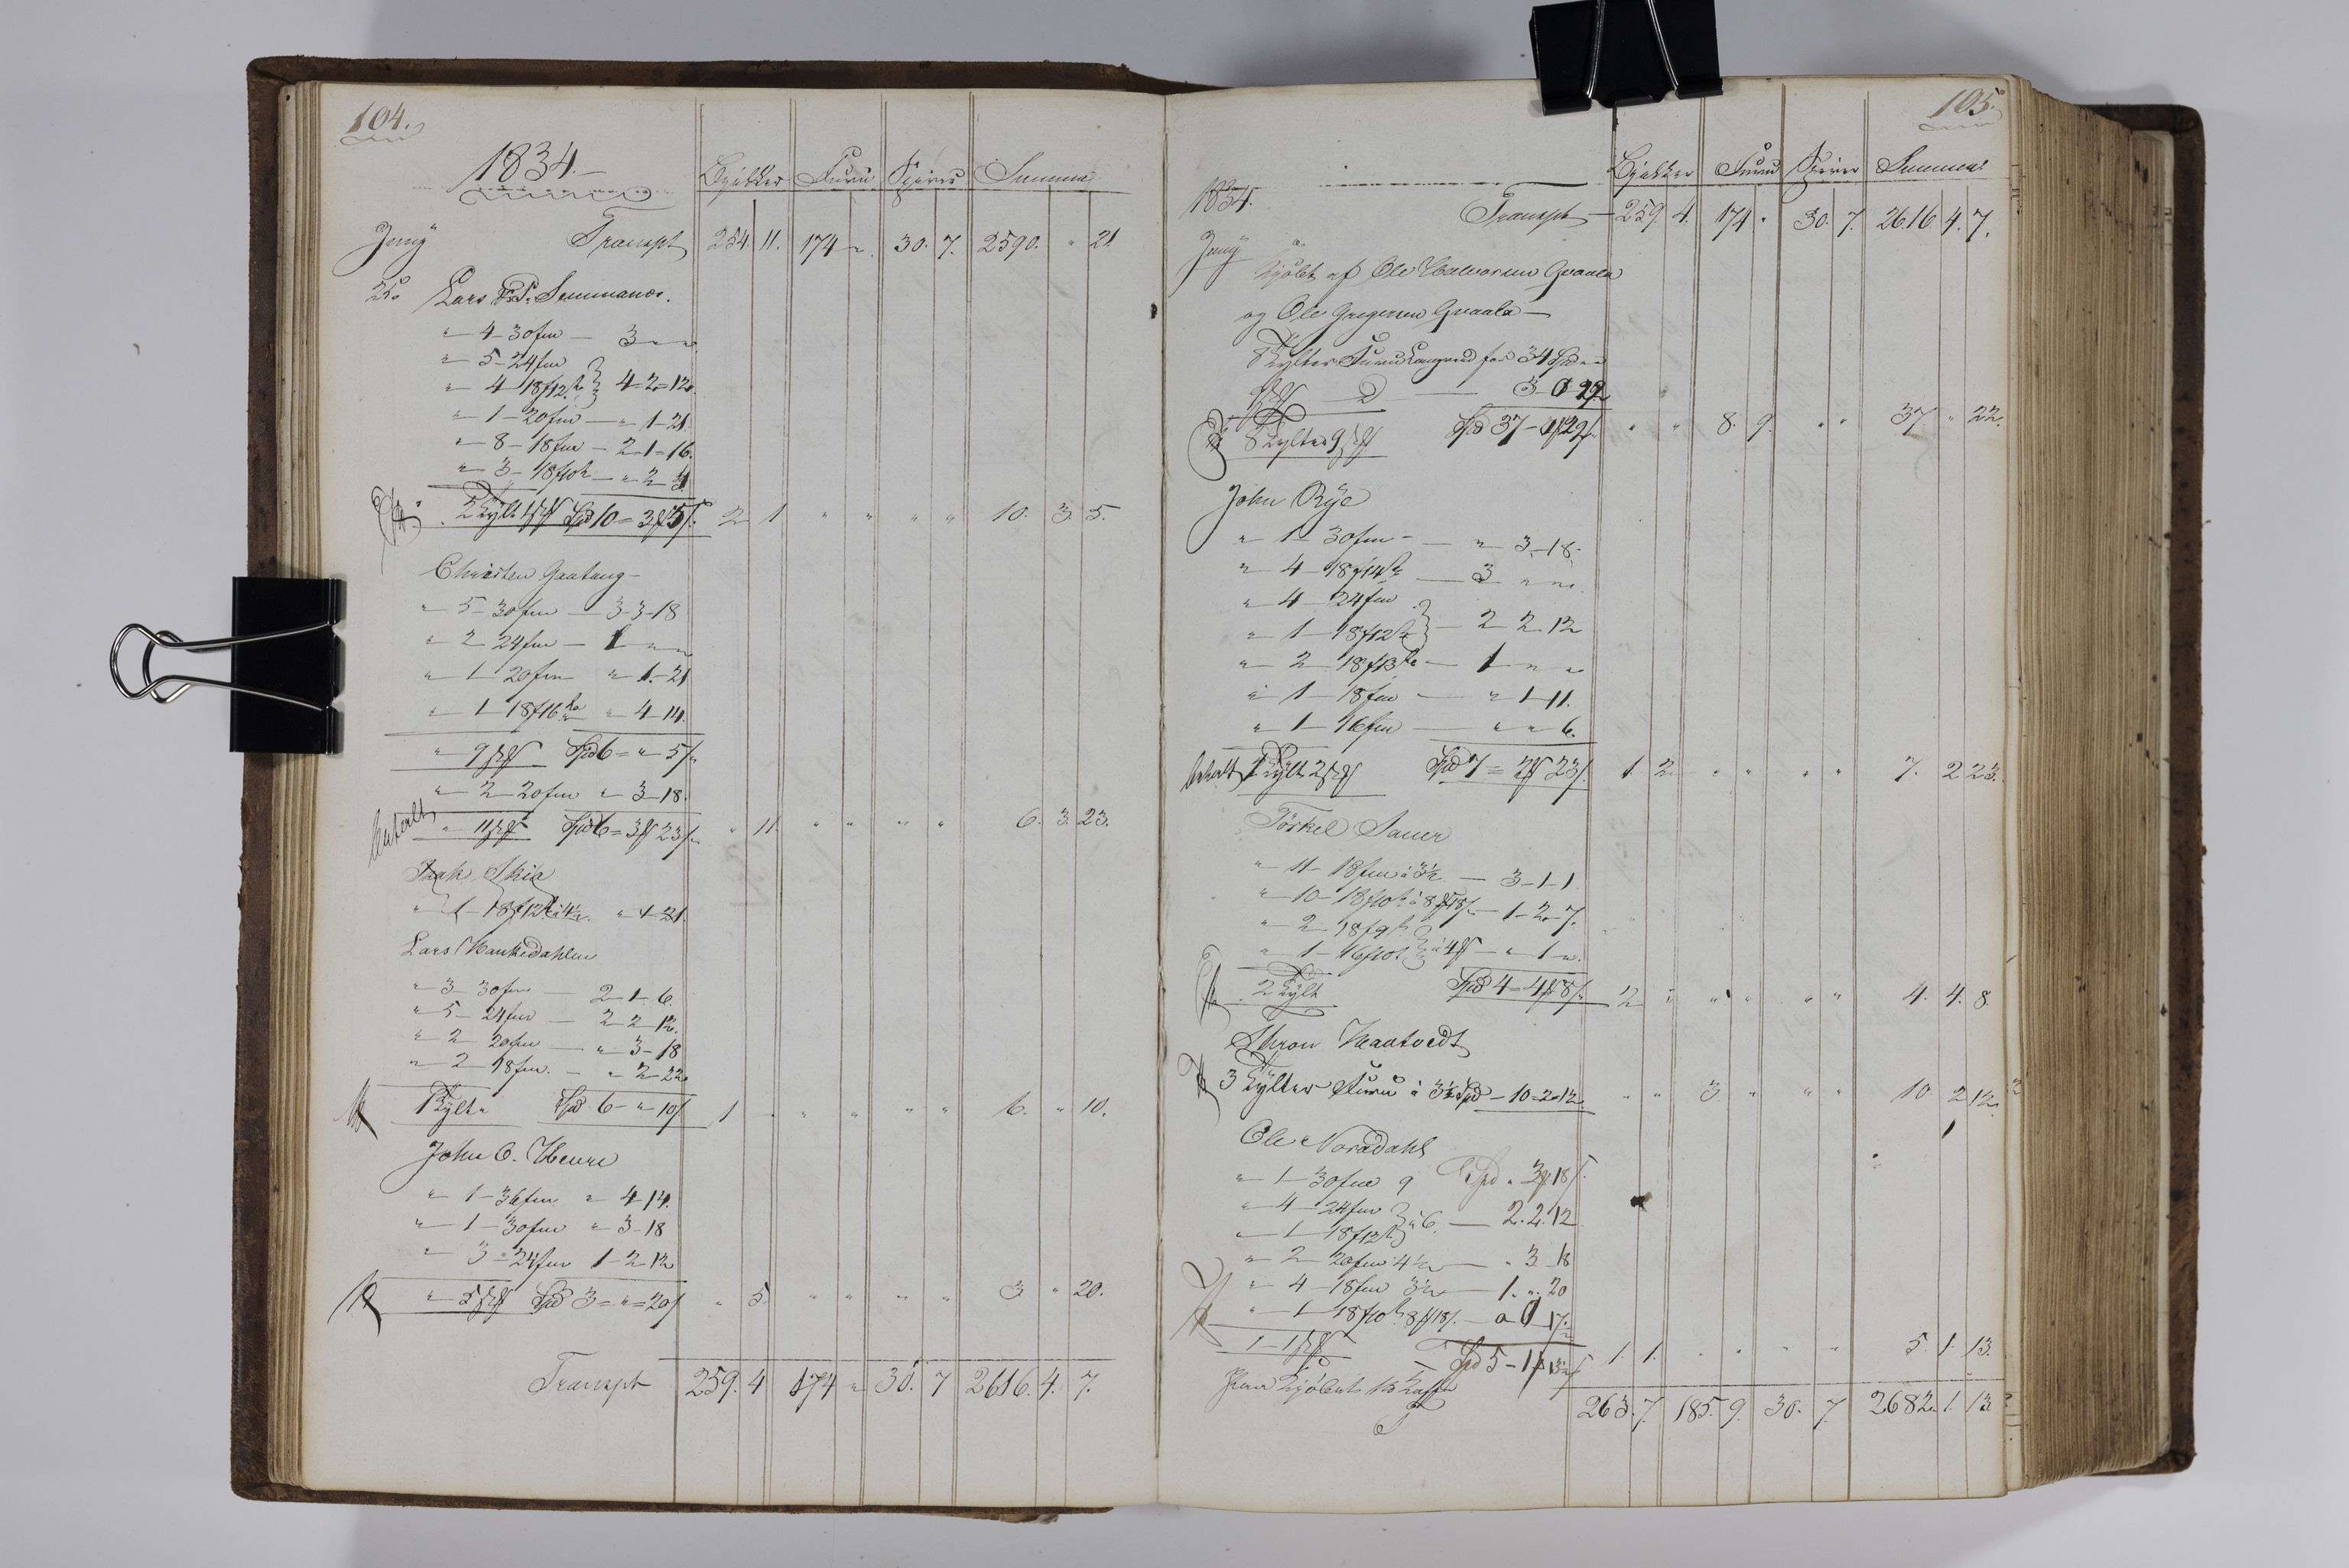 104.
1834.
Bjelker Furu Spirer Summa
Juny Transpt 254. 11. 174 " 30. 7. 2590. " 21
25. Lars Summanes.
" 4 - 30 fm - 3 " "
" 5 - 24 fm
" 4 - 18 f 12 t 4 = 2 = 12.
" 1 - 20 fm - " 1 - 21.
" 8 - 18 fm - 2 - 1 - 16.
" 3 - 18 f 10 t - " 2 - 4
2 Tylt 1 Spd 10 = 3 5 2 1 " " " " 10. 3. 5.
Christen Gaatang -
" 5 - 30 fm - 3 - 3 - 18
" 2 24 fm - 1 " "
" 1 20 fm " 1 - 21
" 1 18 f 16 t " 4 - 14.
" 9 Spd 6 = " 5
" 2 20 fm " 3 - 18.
betalt " 11 Spd 6 = 3 23 " 11 " " " " 6. 3. 23.
Isak Skia
" 1 - 18 f 12 t a 4½. " 4 21.
Lars Haukedahlen
" 3 30 fm - 2 - 1 - 6.
" 5 24 fm - 2 - 2 - 12.
" 2 20 fm - " 3 - 18
" 2 18 fm. - " 2 - 22.
1 Tylt " Spd 6 - " 10 1 " " " " " 6. " 10.
John O. Heure
" 1 - 36 fm " 4 - 14.
" 1 - 30 fm " 3 - 18
" 3 - 24 fm 1 - 2 - 12
" 5 Spd 3 = " = 20 " 5 " " " " 3 " 20.
Transpt 259. 4 174 " 30. 7 2616. 4. 7.
105.
Bjelker Furu Spirer Summa
1834. Transpt - 259. 4. 174 " 30. 7. 2616. 4. 7.
Juny
Kjöbt af Ole Halvorsen Gvaala
og Ole Gregersen Gvaala -
8 Tylter Furu Langved for 34 Spd " "
9 D - 3 - 0 22
8 Tylter 9 Spd 37 - " 22 " " 8. 9. " " 37. " 22.
John Rye
" 1 - 30 fm - " 3 - 18.
" 4 - 18 f 14 t - 3 " "
" 4 - 24 fm
" 1 - 18 f 12 t - 2 2. 12
" 2 18 f 13 t - 1 " "
" 1 - 18 fm - " 1 - 11.
" 1 - 16 fm - " " 6.
betalt 1 Tylt 2 Spd 7 = 2 23 1. 2 " " " " 7. 2 23.
Törkel Sauer
" 11 - 18 fm a 3½ - 3 - 1 - 1
" 10 - 18 f 10 t a 8 18 - 1 - 2 - 7.
" 2 - 18 f 9 t
" 1 - 16 f 10 t a 4 - " 1 "
2 Tylt Spd 4 - 4 8 2 " " " " " 4. 4. 8
Thron Hautvedt
3 Tylter Furu a 3½ Spd - 10 = 2 = 12 " " 3. " " " 10 2 12
Ole Noradahl
" 1 30 fm 9 Spd " 3 18
" 4 - 24 fm
" 1 18 f 12 t a 6. - 2. 2. 12
" 2 20 fm 4½ - " 3 - 18
" 4 - 18 fm 3½ - 1. " 20
" 1 18 f 10 t 8 18 - " 17
1 - 1 Spd 5 - 1 13 1. 1. " " " " 5. 1. 13.
263. 7. 185. 9. 30. 7. 2682. 1. 13